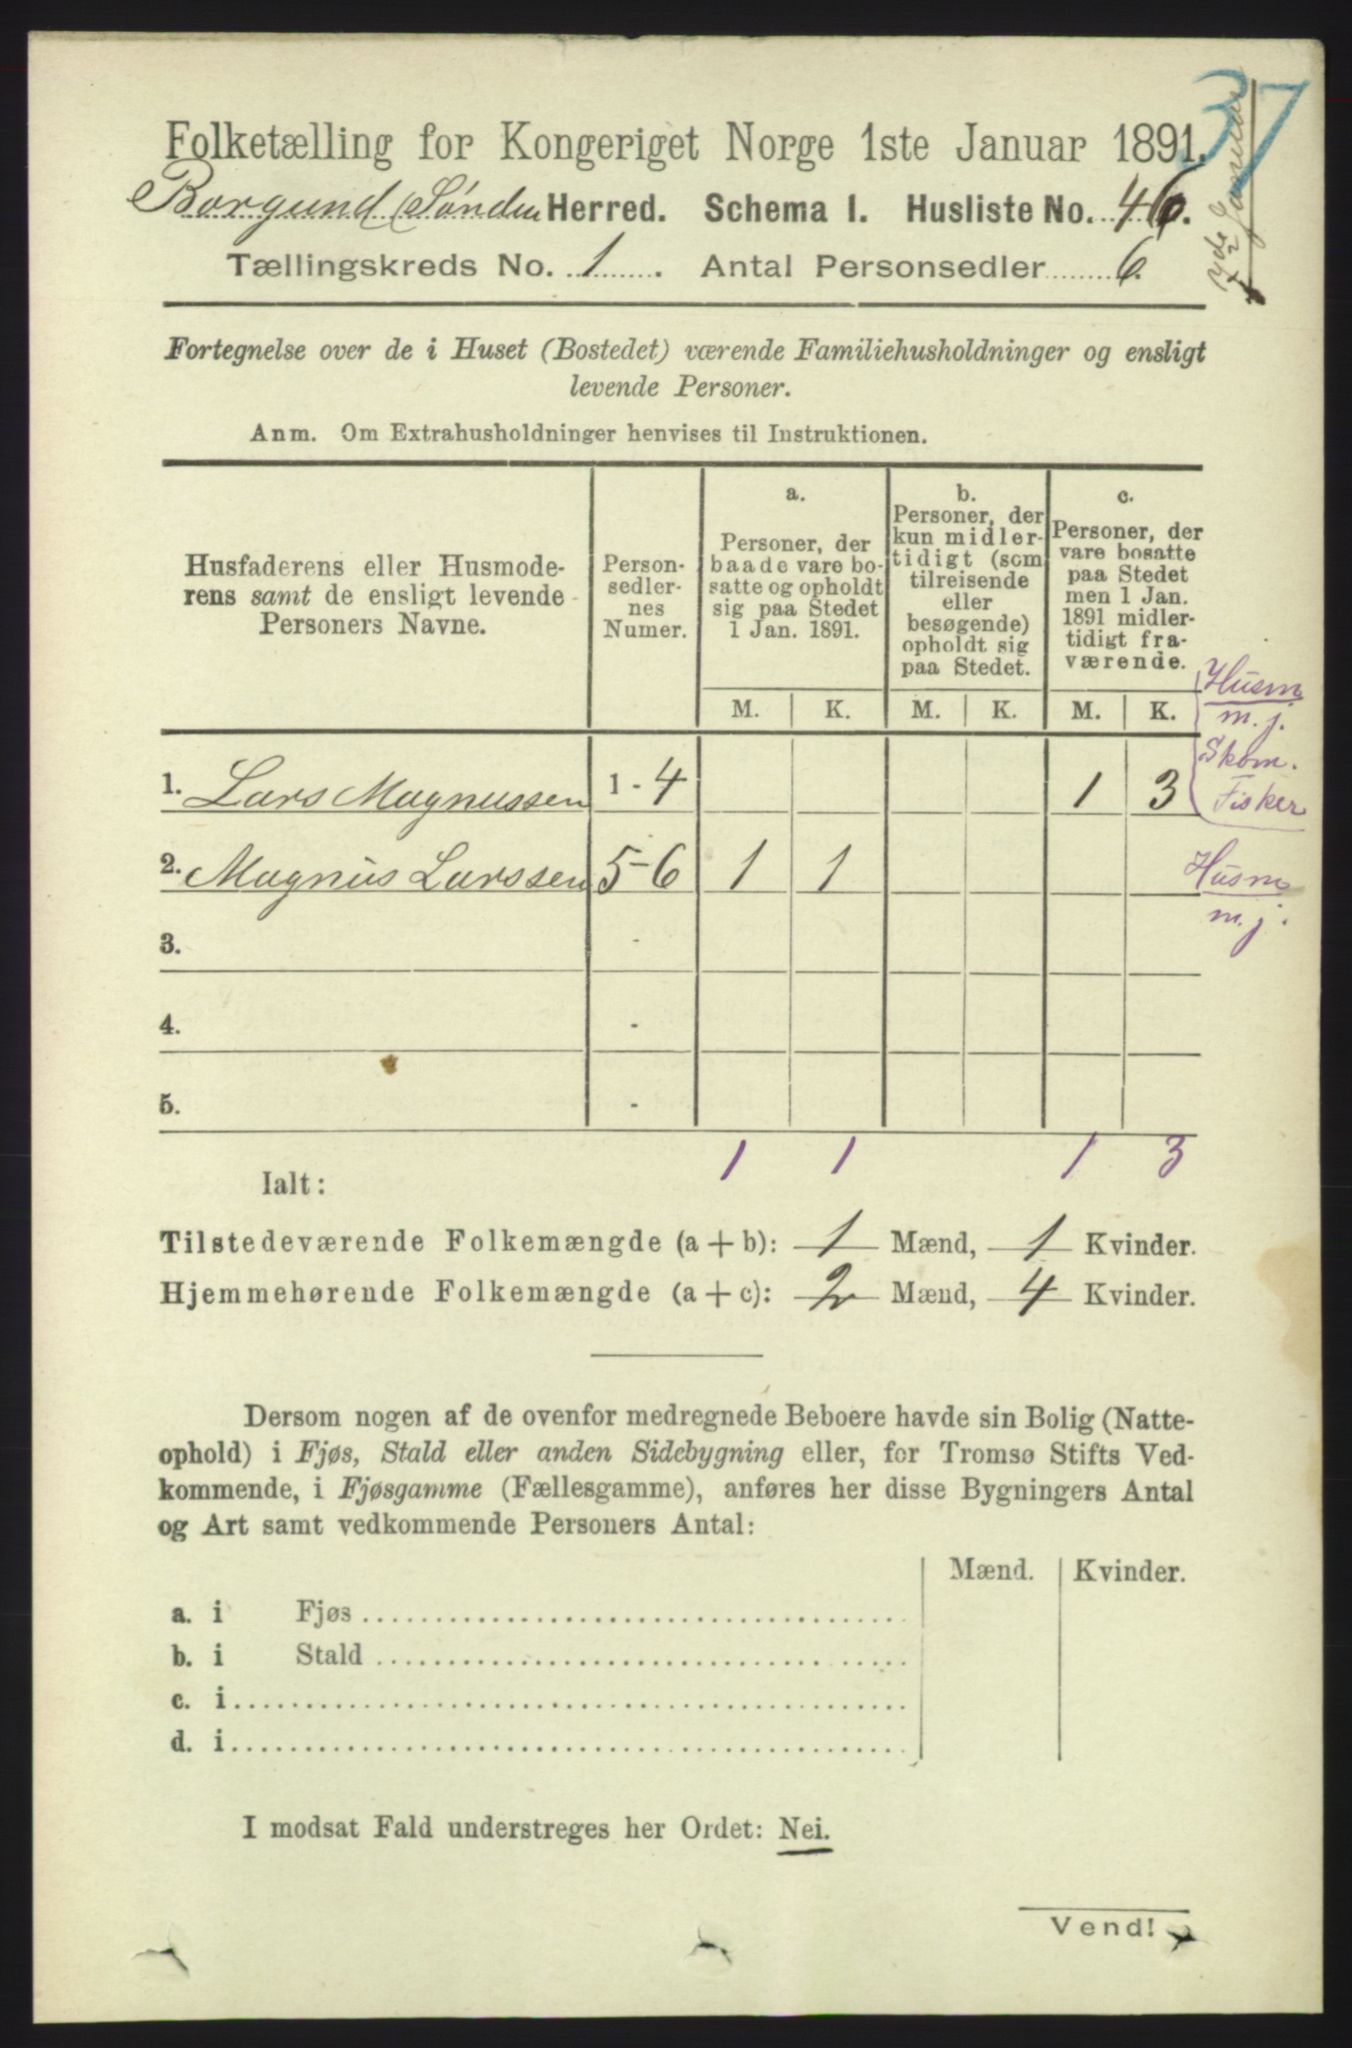 37
Folketælling for Kongeriget Norge 1ste Januar 1891.
Borgund (Sønden Herred. Schema I. Husliste No. 46.
Tællingskreds No. 1. Antal Personsedler 6.
Fortegnelse over de i Huset (Bostedet) værende Familiehusholdninger og ensligt
levende Personer.
Anm. Om Extrahusholdninger henvises til Instruktionen.
Husfaderens eller Husmode-
rens samt de ensligt levende
Personers Navne.
Person-
sedler-
nes
Numer.
a.
Personer, der
baade vare bo-
satte og opholdt
sig paa Stedet
1 Jan. 1891.
b.
Personer, der
kun midler-
tidigt (som
tilreisende
eller
besøgende)
opholdt sig
paa Stedet.
c.
Personer, der
vare bosatte
paa Stedet
men 1 Jan.
1891 midler-
tidigt fra-
værende.
M. K. M. K. M. K.
Husm
m. j.
Skom.
Fisker
1. Lars Magnussen 1 - 4 1 3
2. Magnus Larssen 5-6 1 1
Husm
m. j.
3. -
4. -
5. -
1 1 1 3
Ialt:
Tilstedeværende Folkemængde (a + b): 1 Mænd, 1 Kvinder.
Hjemmehørende Folkemængde (a + c): 2 Mænd, 4 Kvinder.
Dersom nogen af de ovenfor medregnede Beboere havde sin Bolig (Natte-
ophold) i Fjøs, Stald eller anden Sidebygning eller, for Tromsø Stifts Ved-
kommende, i Fjøsgamme (Fællesgamme), anføres her disse Bygningers Antal
og Art samt vedkommende Personers Antal:
Mænd. Kvinder.
a. i Fjøs
b. i Stald
c. i
d. i
I modsat Fald understreges her Ordet: Nei.
Vend!